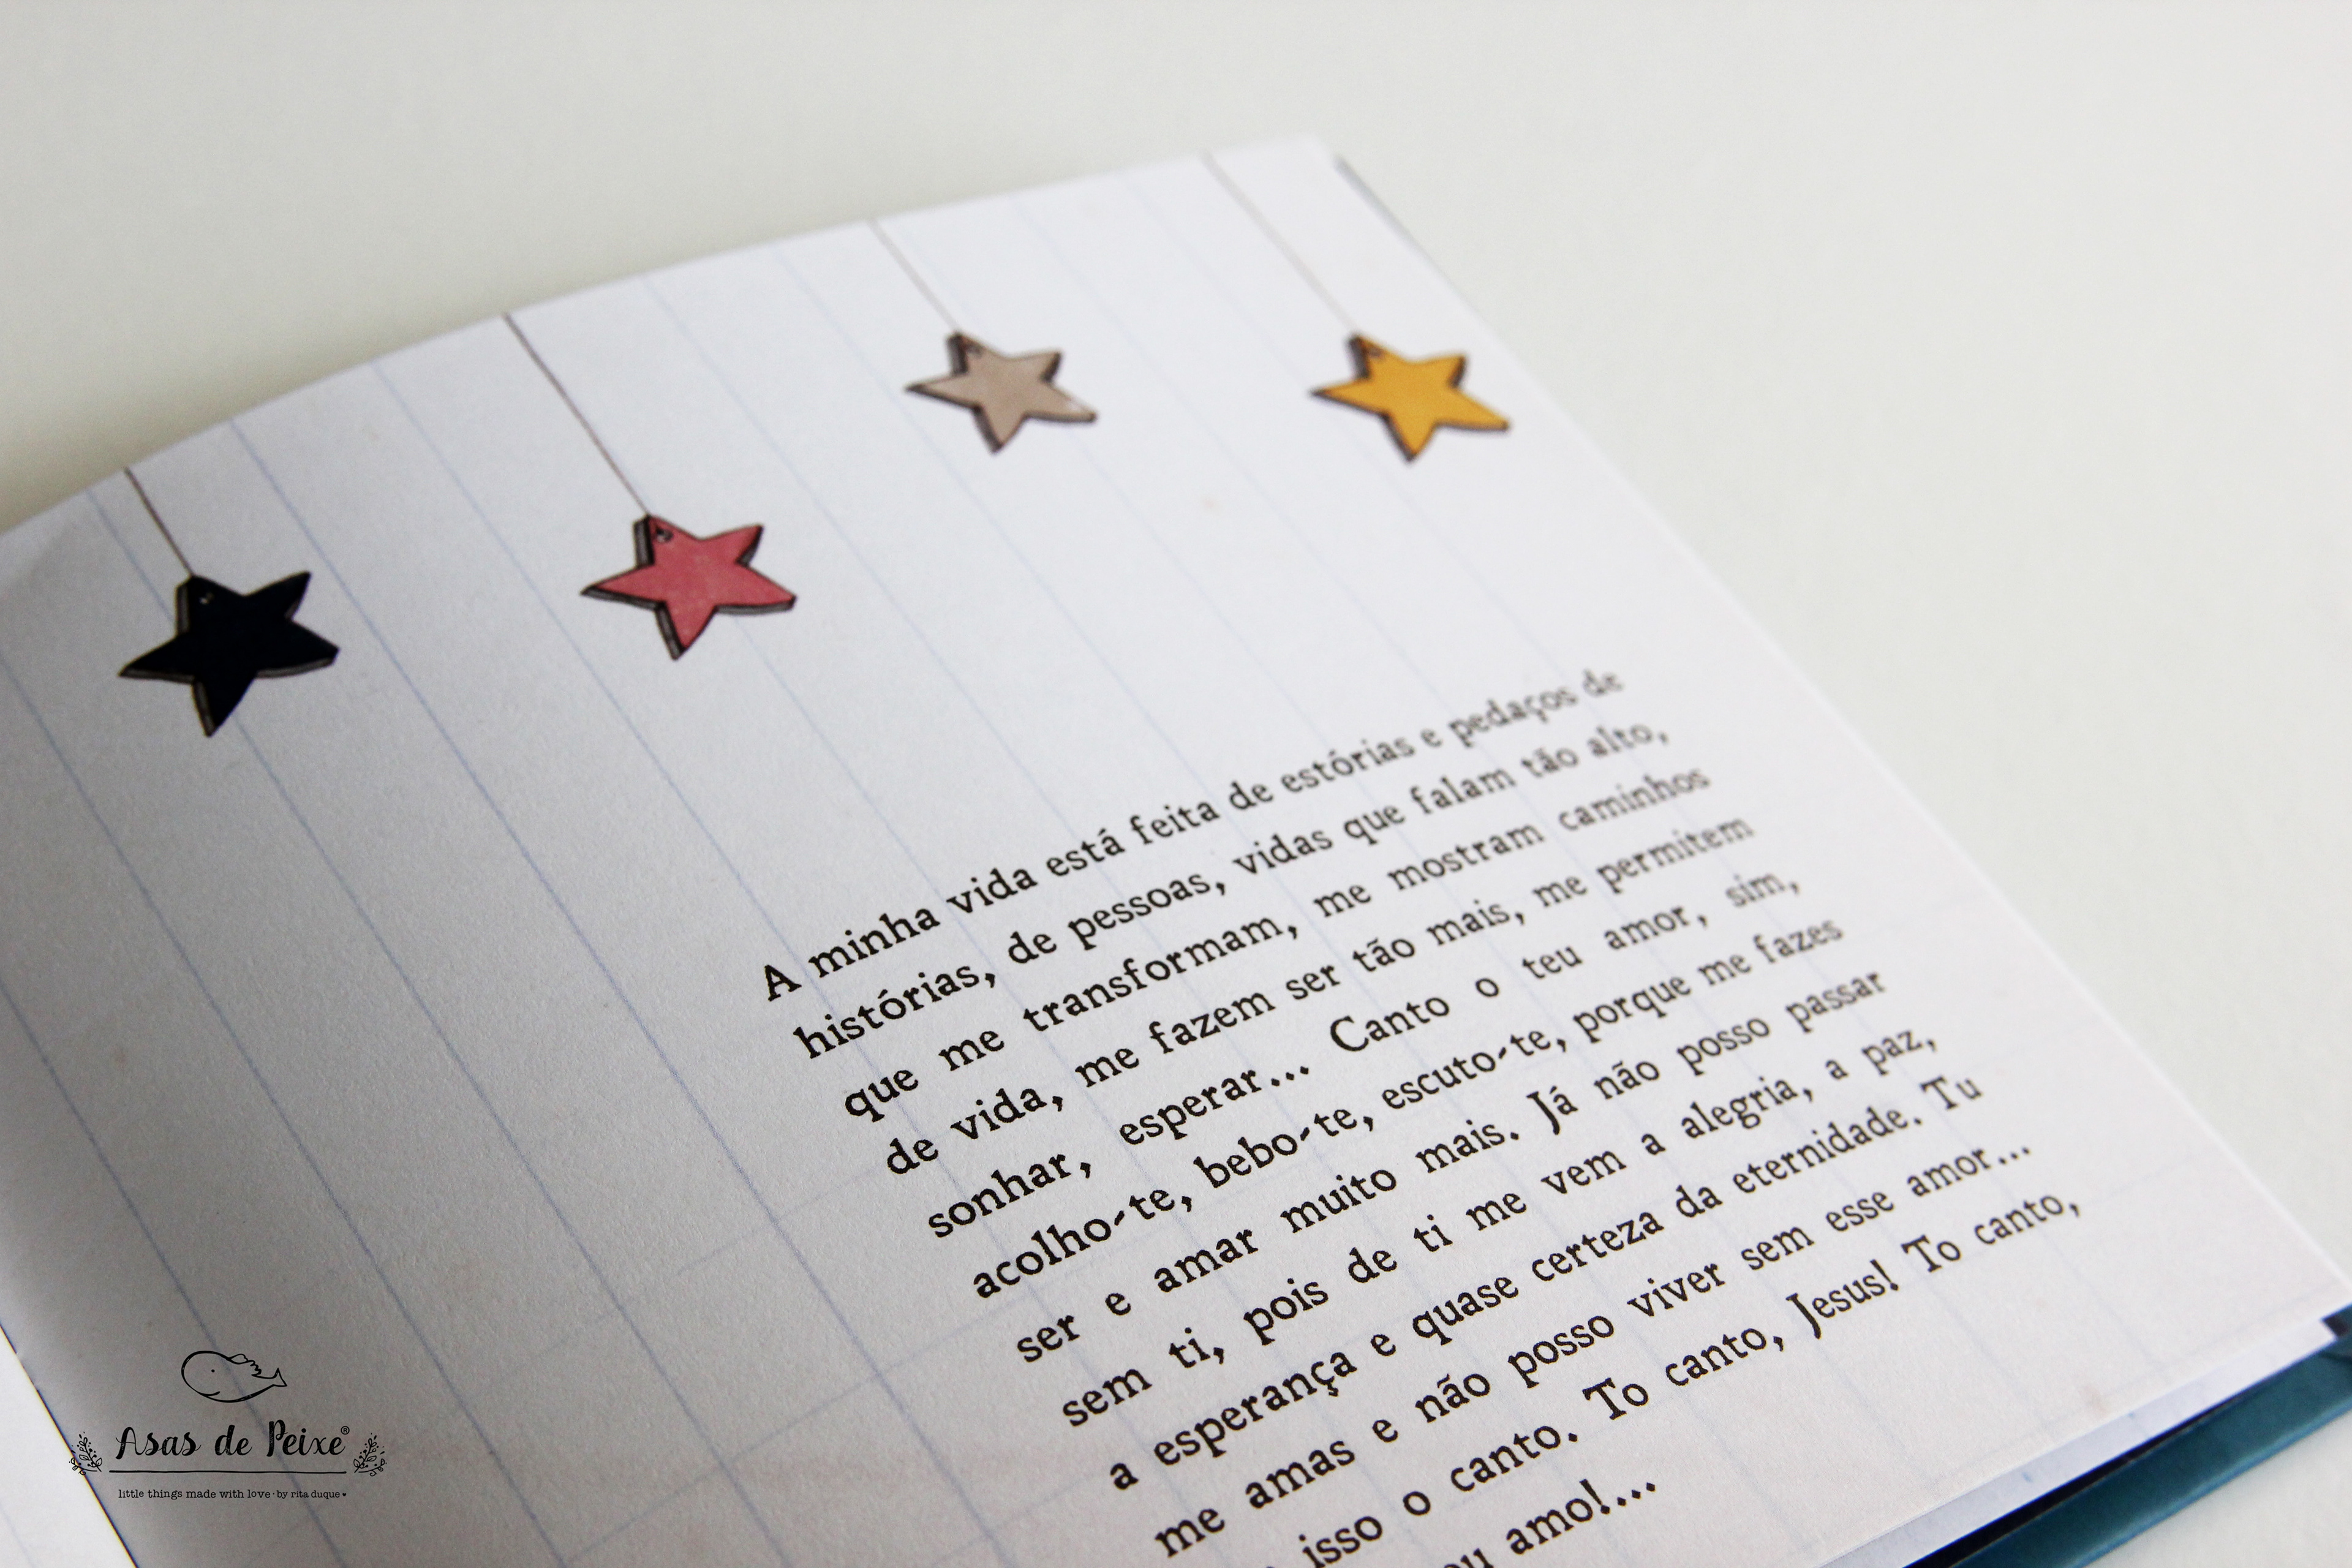 A minha vida está feita de estórias e pedaços de
histórias, de pessoas, vidas que falam tão alto,
que me transformam, me mostram caminhos
de vida, me fazem ser tão mais, me permitem
sonhar, esperar... Canto o teu amor, sim,
acolho-te, bebo-te, escuto-te, porque me fazes
ser e amar muito mais. Já não posso passar
sem ti, pois de ti me vem a alegria, a paz,
a esperança e quase certeza da eternidade. Tu
me amas e não posso viver sem esse amor...
isso o canto. To canto, Jesus! To canto,
amo!...
Asas de Peixe®
little things made with love · by rita duque ♥